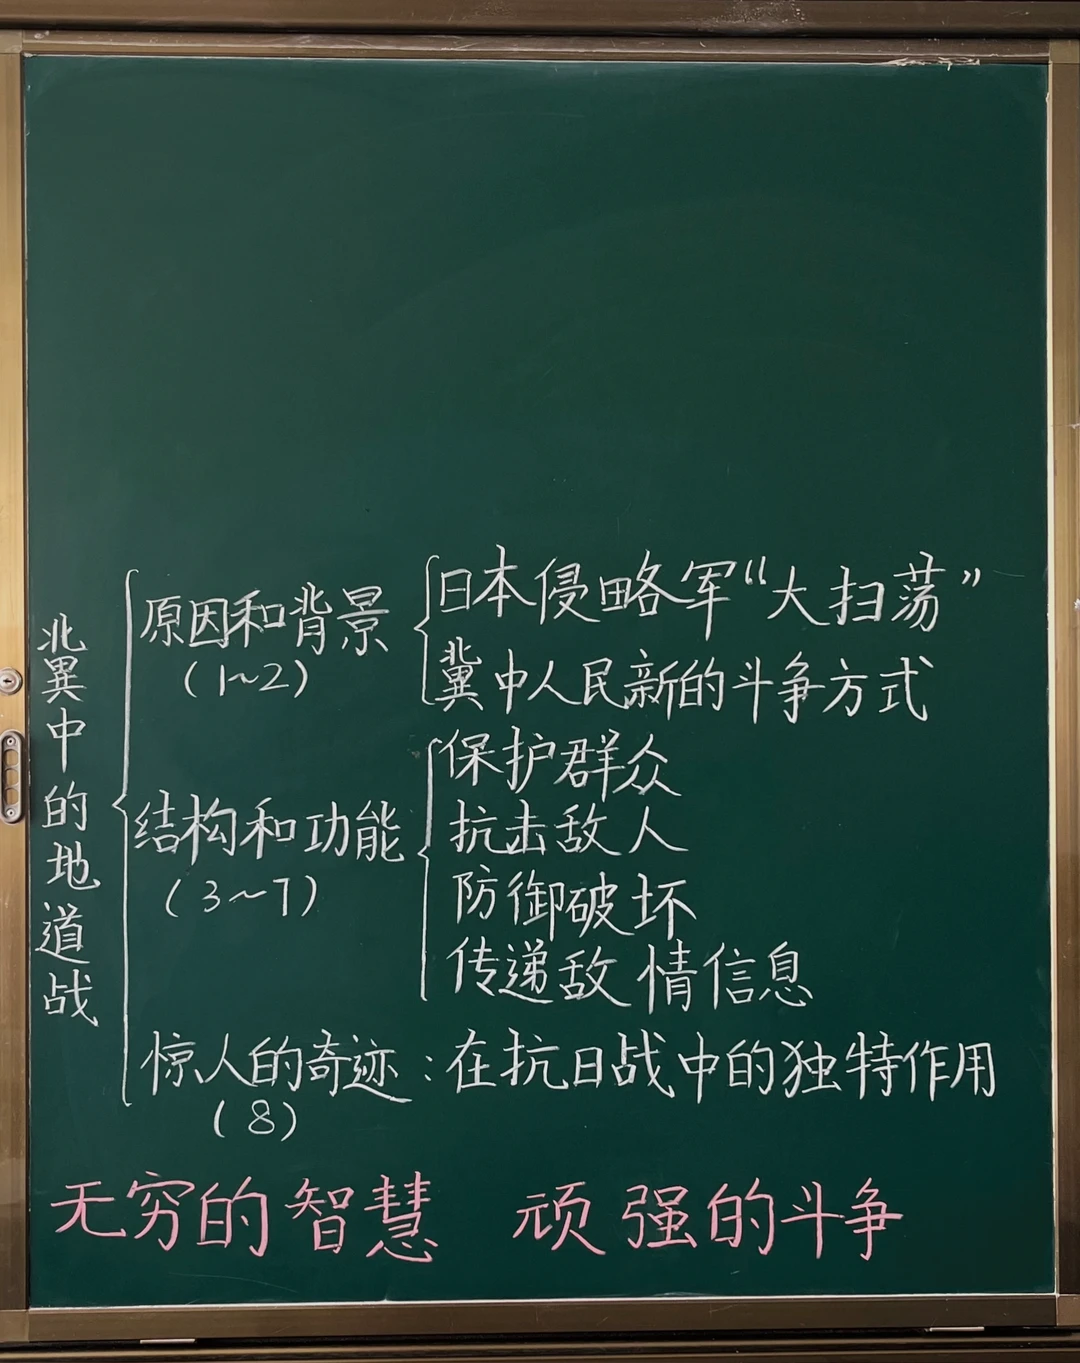 冀中的地道战
原因和背景
(1~2)
日本侵略军“大扫荡”
冀中人民新的斗争方式
结构和功能
(3~7)
保护群众
抗击敌人
防御破坏
传递敌情信息
惊人的奇迹：在抗日战中的独特作用
(8)
无穷的智慧 顽强的斗争